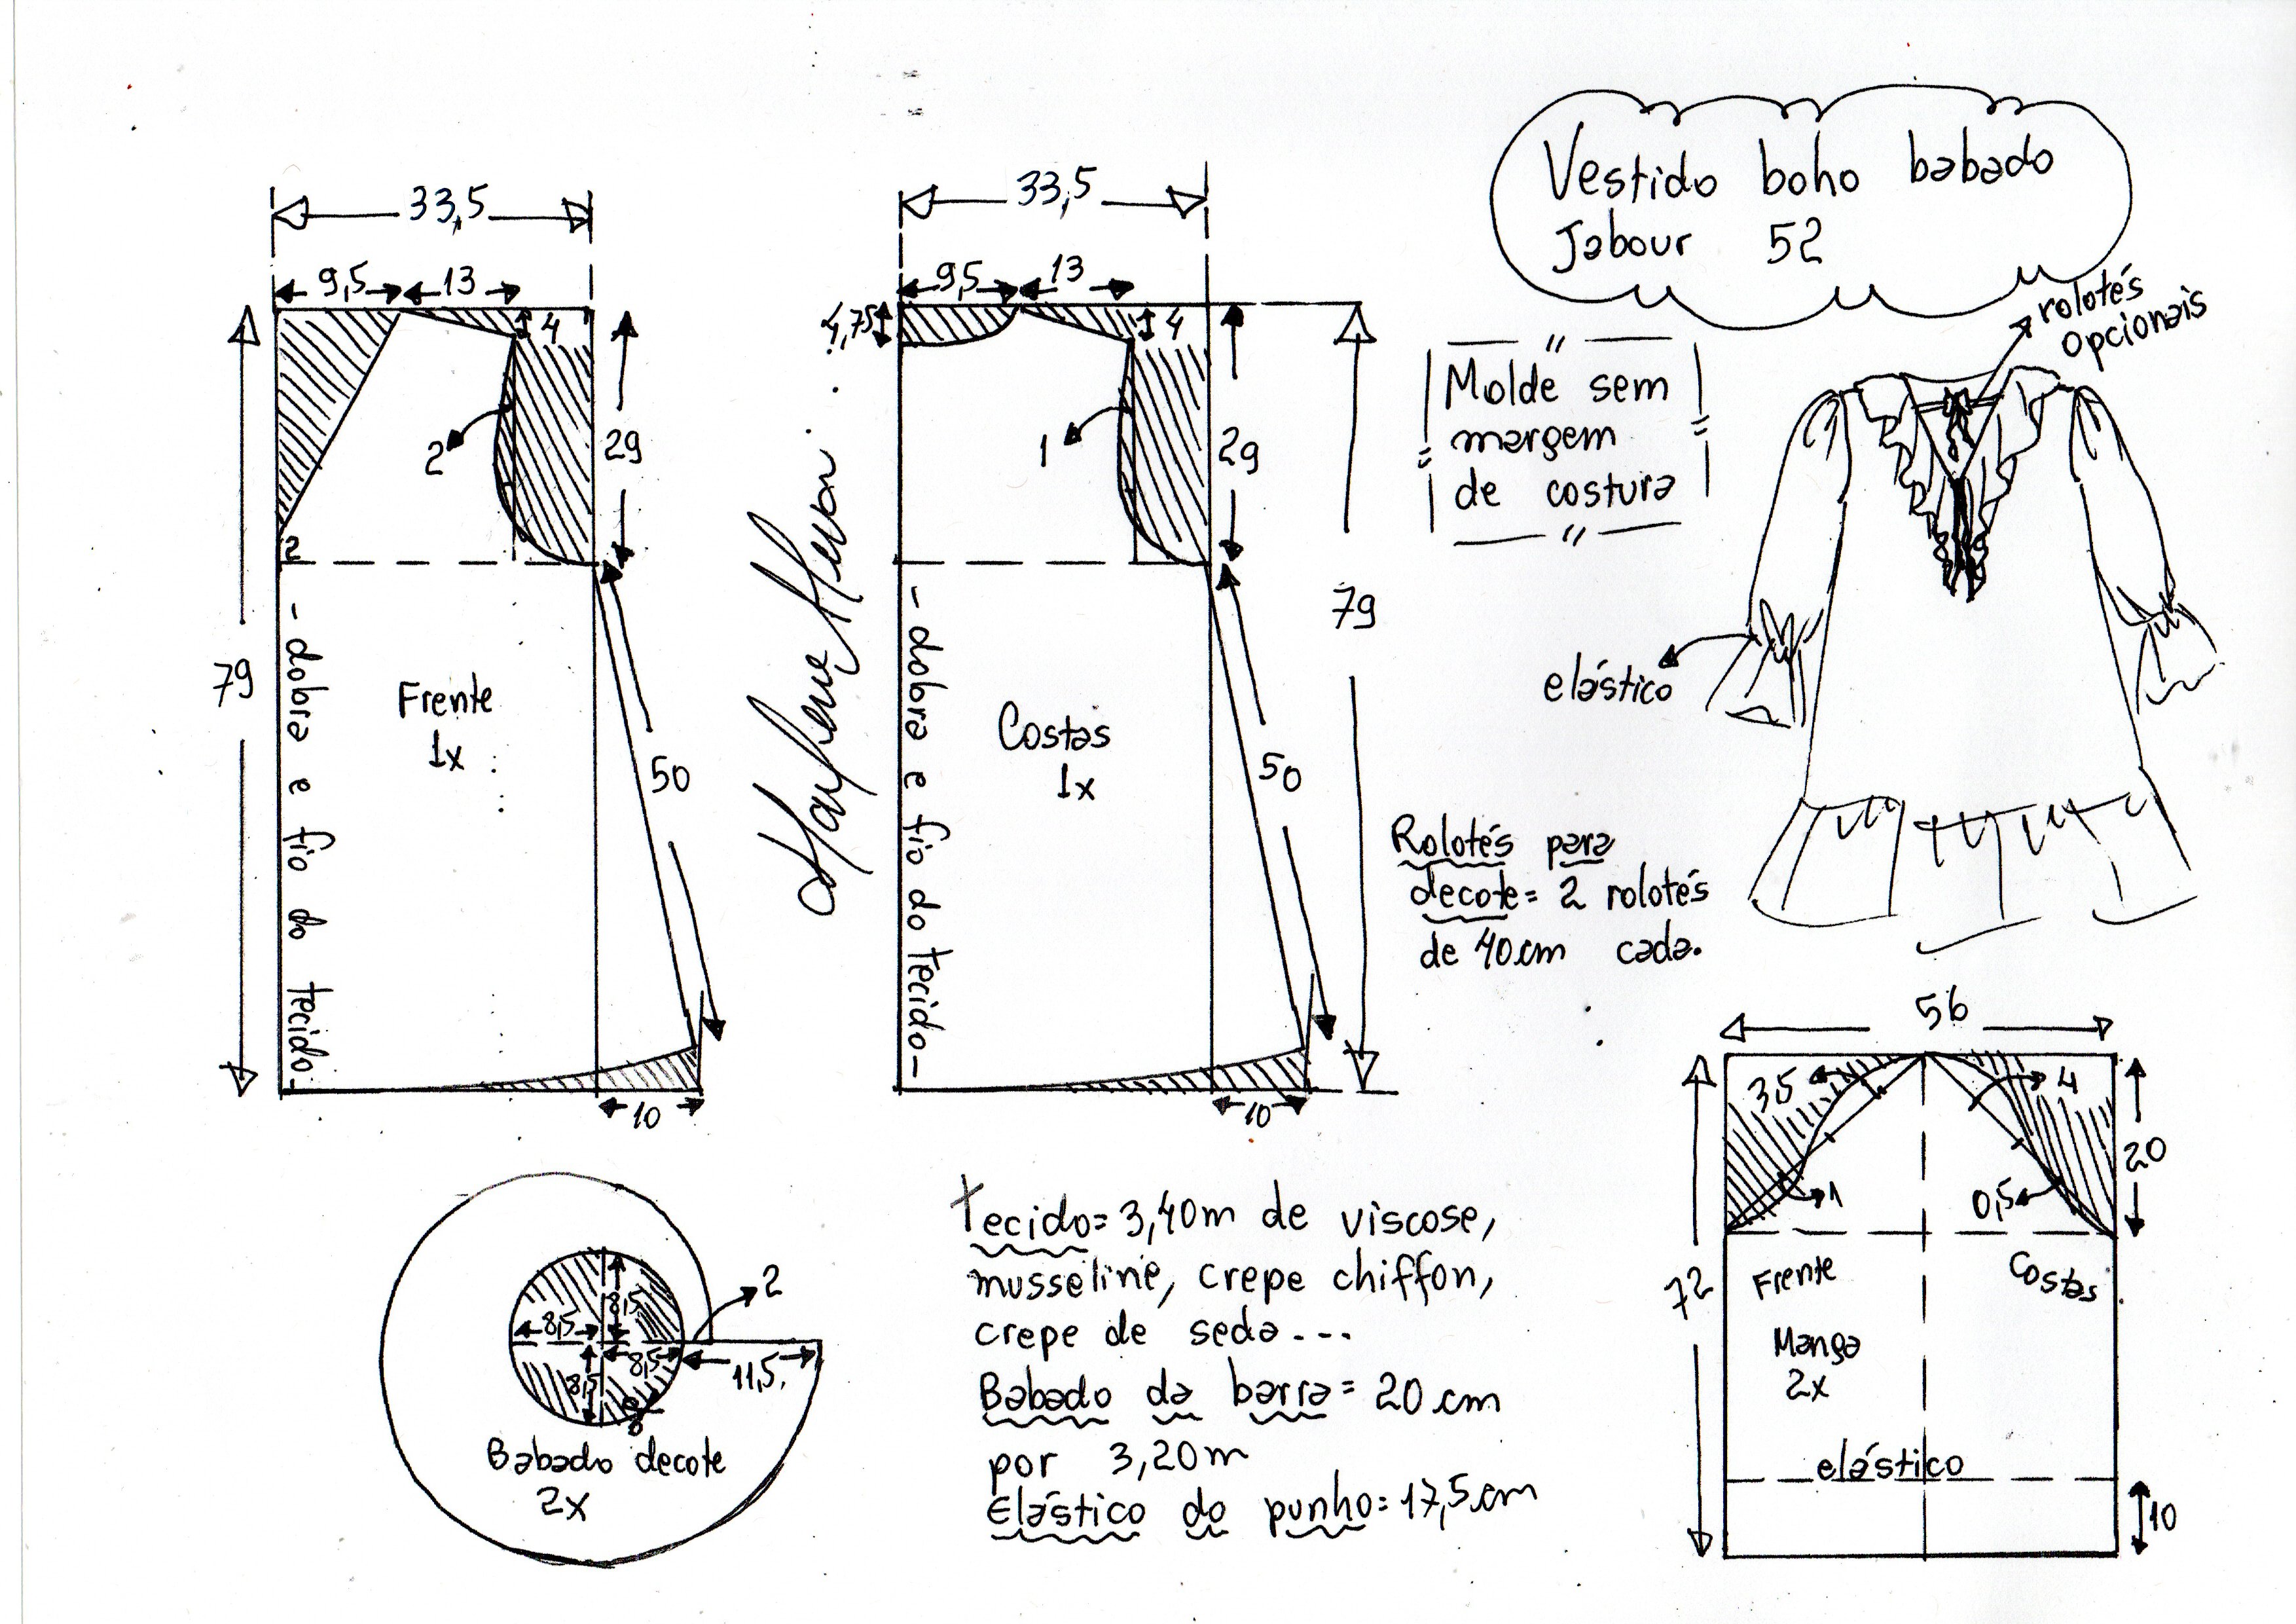 Vestido boho babado
Jabour 52
rolotés
opcionais
Molde sem
margem
de costura
elástico
33,5
9,5
13
4
2
29
2
79
50
10
Frente
1x
- dobra e fio do tecido -
33,5
9,5
13
4,75
4
1
29
79
50
10
Costas
1x
- dobra e fio do tecido -
Rolotés para
decote = 2 rolotés
de 40cm cada.
8,5
8,5
8,5
8,5
2
11,5
Babado decote
2x
Tecido = 3,40m de viscose,
musseline, crepe chiffon,
crepe de seda...
Babado da barra = 20 cm
por 3,20m
Elástico do punho = 17,5cm
56
3,5
4
20
1
0,5
72
Frente
Costas
Manga
2x
elástico
10